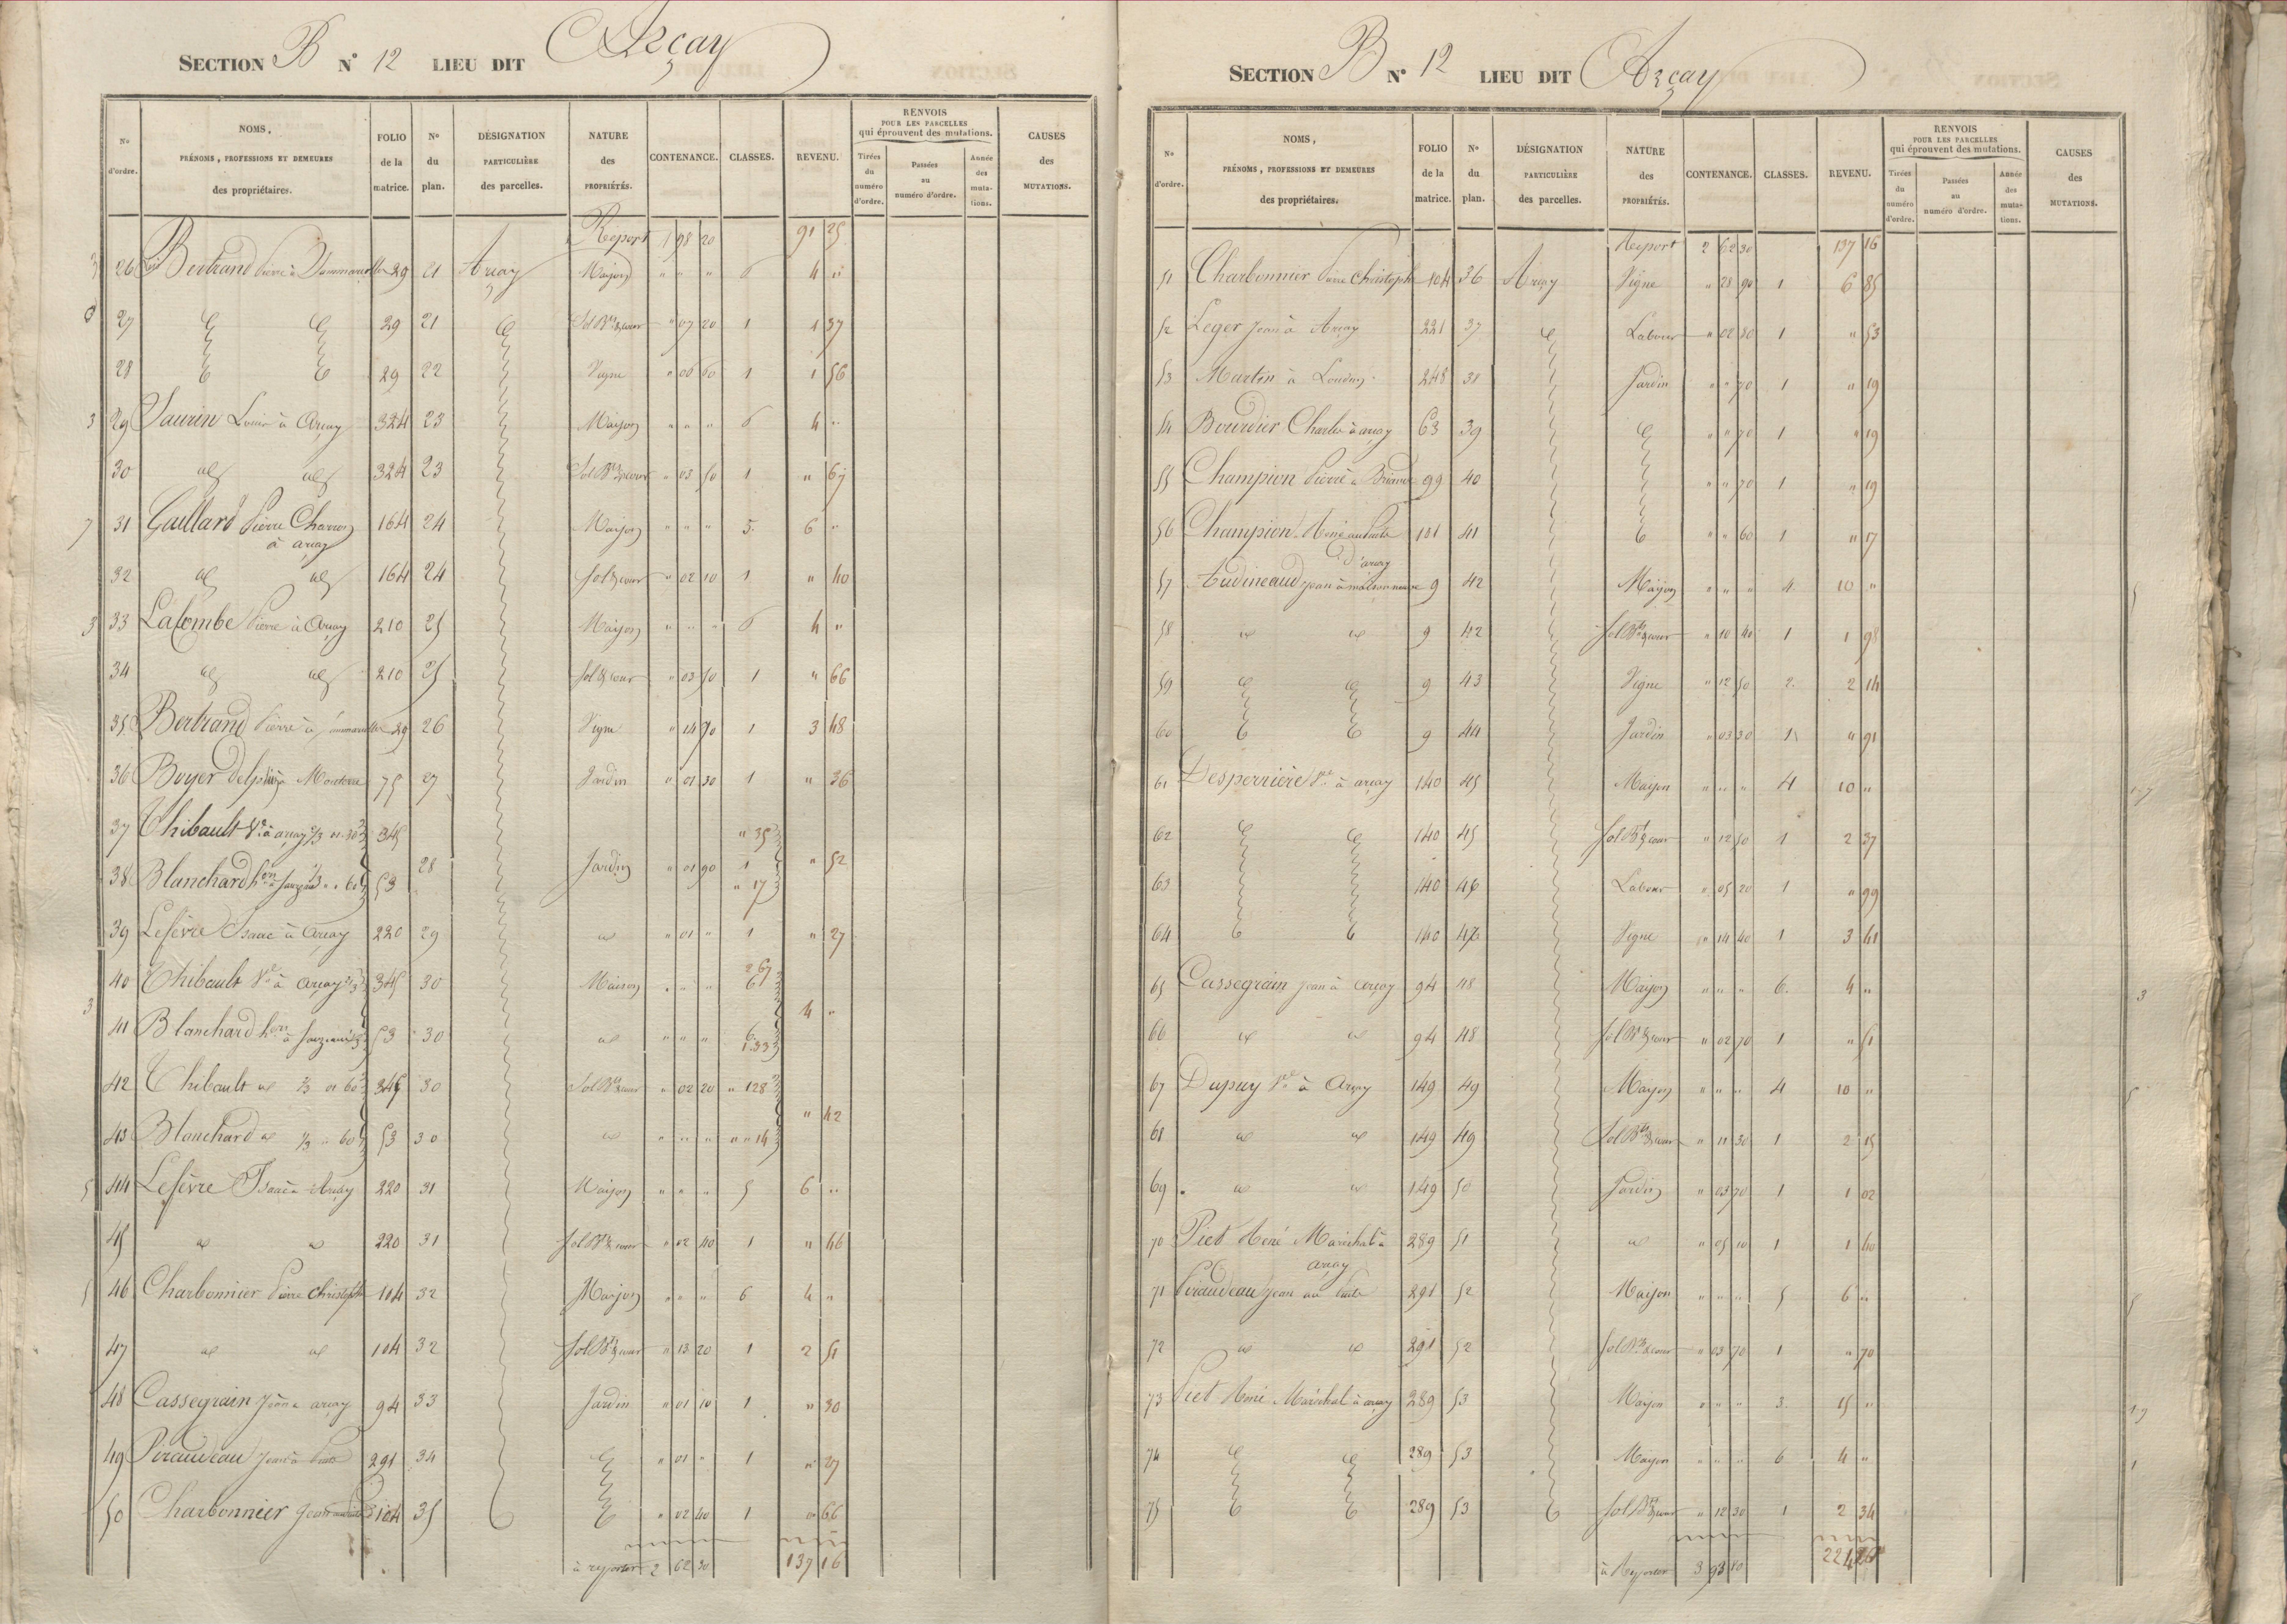 SECTION B N° 12 LIEU DIT Arçay
N° d'ordre. NOMS, PRÉNOMS, PROFESSIONS ET DEMEURES des propriétaires. FOLIO de la matrice. N° du plan. DÉSIGNATION PARTICULIÈRE des parcelles. NATURE des PROPRIÉTÉS. CONTENANCE. CLASSES. REVENU. RENVOIS POUR LES PARCELLES qui éprouvent des mutations. Tirées du numéro d'ordre. Passées au numéro d'ordre. Année des mutations. CAUSES des MUTATIONS.
Report 1 98 20 91 25
3 26 Bertrand Pierre à 29 21 Arçay Maison " " " 6 4 "
27 29 21 Sol Bts & cour " 07 20 1 1 37
28 29 22 Vigne " 06 60 1 1 56
3 29 Saurin Louis à Arçay 324 23 Maison " " " 6 4 "
30 id id 324 23 Sol Bts & cour " 03 50 1 " 67
7 31 Gaillard Pierre Charron 164 24 Maison " " " 5. 6 "
à arçay
32 id id 164 24 Sol & cour " 02 10 1 " 40
3 33 Lacombe Pierre à Arçay 210 25 Maison " " " 6 4 "
34 id id 210 25 Sol & cour " 03 50 1 " 66
35 Bertrand Pierre à 29 26 Vigne " 14 70 1 3 48
36 Boyer Delphin à 75 27 Jardin " 01 30 1 " 36
37 Thibault Ve à arçay 2/3 01.30 345 " 35
28 Jardin " 01 90 1 " 52
38 Blanchard 1/3 " 60 53 " 17
39 Lefèvre Isaac à Arçay 220 29 id " 01 " 1 " 27
40 Thibault Ve à arçay 2/3 345 30 Maison " " " 2 67 6
3 4 "
41 Blanchard 53 30 id " " " 6. 1.33
42 Thibault id 2/3 01 60 345 30 Sol Bts & cour " 02 20 " 128
" 42
43 Blanchard id 1/3 " 60 53 30 id " " " " " 14
5 44 Lefèvre Isaac à Arçay 220 31 Maison " " " 5 6 "
45 id id 220 31 Sol Bts & cour " 02 40 1 " 46
5 46 Charbonnier Pierre Christophe 104 32 Maison " " " 6 4 "
47 id id 104 32 Sol Bts & cour " 13 20 1 2 51
48 Cassegrain Jean à arçay 94 33 Jardin " 01 10 1 " 30
49 Piraudeau Jean à 291 34 " 01 " 1 " 27
50 Charbonnier Jean 104 35 " 02 40 1 " 66
à reporter 2 62 30 137 16
SECTION B N° 12 LIEU DIT Arçay
N° d'ordre. NOMS, PRÉNOMS, PROFESSIONS ET DEMEURES des propriétaires. FOLIO de la matrice. N° du plan. DÉSIGNATION PARTICULIÈRE des parcelles. NATURE des PROPRIÉTÉS. CONTENANCE. CLASSES. REVENU. RENVOIS POUR LES PARCELLES qui éprouvent des mutations. Tirées du numéro d'ordre. Passées au numéro d'ordre. Année des mutations. CAUSES des MUTATIONS.
Report 2 62 30 137 16
51 Charbonnier Pierre Christophe 104 36 Arçay Vigne " 28 90 1 6 85
52 Leger Jean à Arçay 221 37 Labour " 02 80 1 " 53
53 Martin à Loudun 248 38 Jardin " " 70 1 " 19
54 Bourdier Charles à arçay 63 39 " " 70 1 " 19
55 Champion Pierre à 99 40 " " 70 1 " 19
56 Champion René 101 41 " " 60 1 " 17
d'arçay
57 Audineaud Jean à maisonneuve 9 42 Maison " " " 4. 10 " 5
58 id id 9 42 Sol Bts & cour " 10 40 1 1 98
59 9 43 Vigne " 12 50 2. 2 14
60 9 44 Jardin " 03 30 1 " 91
61 Desperrière Ve à arçay 140 45 Maison " " " 4 10 "
62 140 45 Sol Bt & cour " 12 50 1 2 37
63 140 46 Labour " 05 20 1 " 99
64 140 47 Vigne " 14 40 1 3 41
65 Cassegrain Jean à arçay 94 48 Maison " " " 6. 4 " 3
66 id id 94 48 Sol Bt & cour " 02 70 1 " 51
67 Dupuy Ve à Arçay 149 49 Maison " " " 4 10 " 5
68 id id 149 49 Sol Bts & cour " 11 30 1 2 15
69 id id 149 50 Jardin " 03 70 1 1 02
70 Piet René Maréchal à 289 51 id " 05 10 1 1 40
arçay
71 Piraudeau Jean au 291 52 Maison " " " 5 6 " 5
72 id id 291 52 Sol Bts & cour " 03 70 1 " 70
73 Piet René Maréchal à arçay 289 53 Maison " " " 3. 15 "
74 289 53 Maison " " " 6 4 " 1
75 289 53 Sol Bts & cour " 12 30 1 2 34
à Reporter 3 93 10